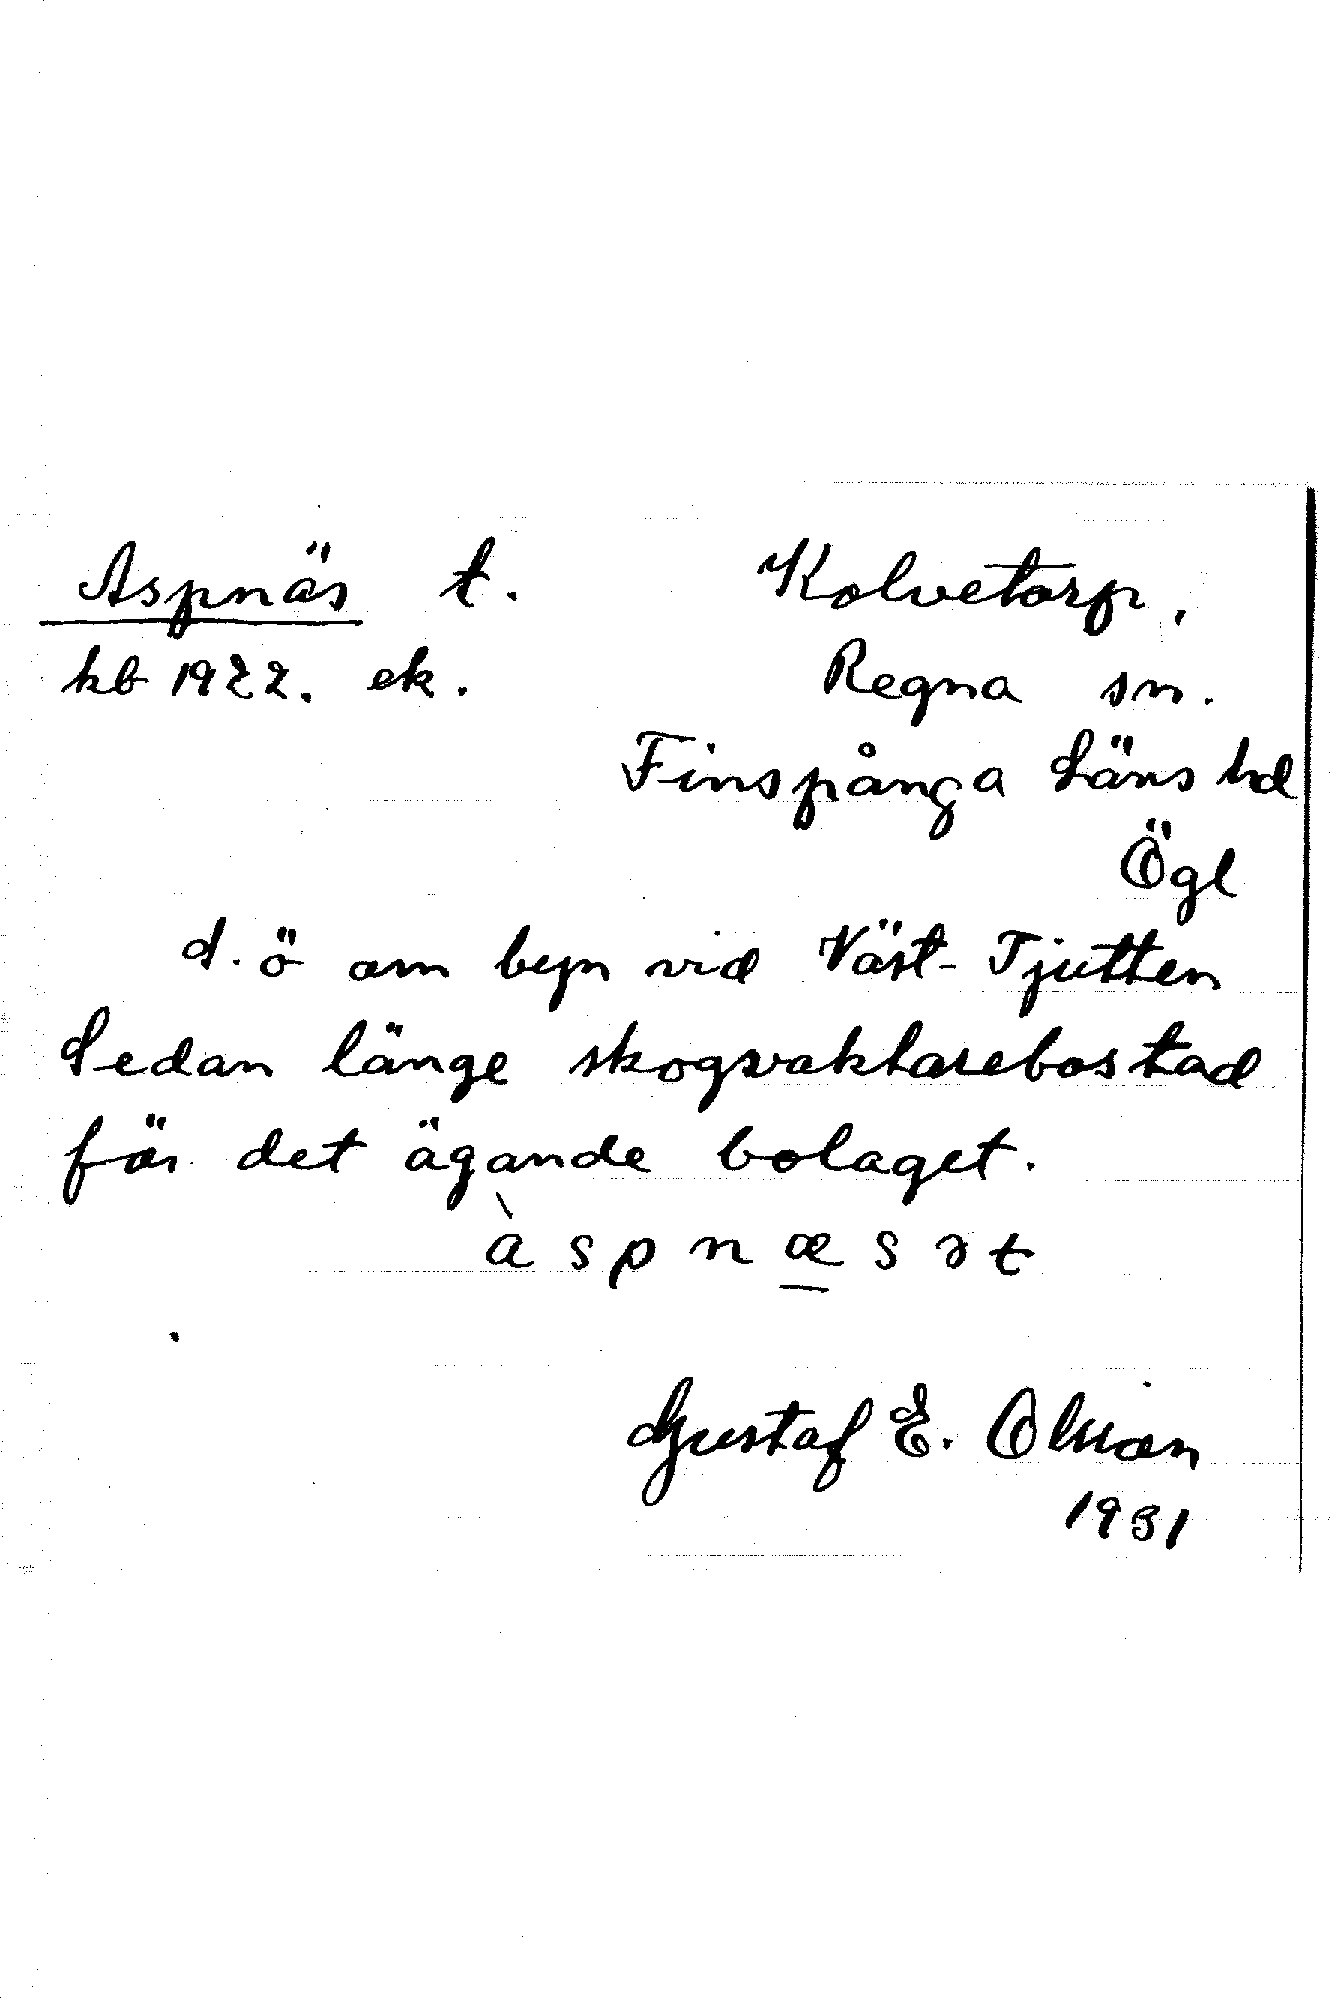 Aspnäs t. Kolvetorp,
kb 1922. ek. Regna sn.
Finspånga Läns hd
Ögl
d. ö om byn vid Väst-Tjutten
Sedan länge skogsvaktarebostad
för det ägande bolaget.
àspnæsət
Gustaf E. Olsson
1931